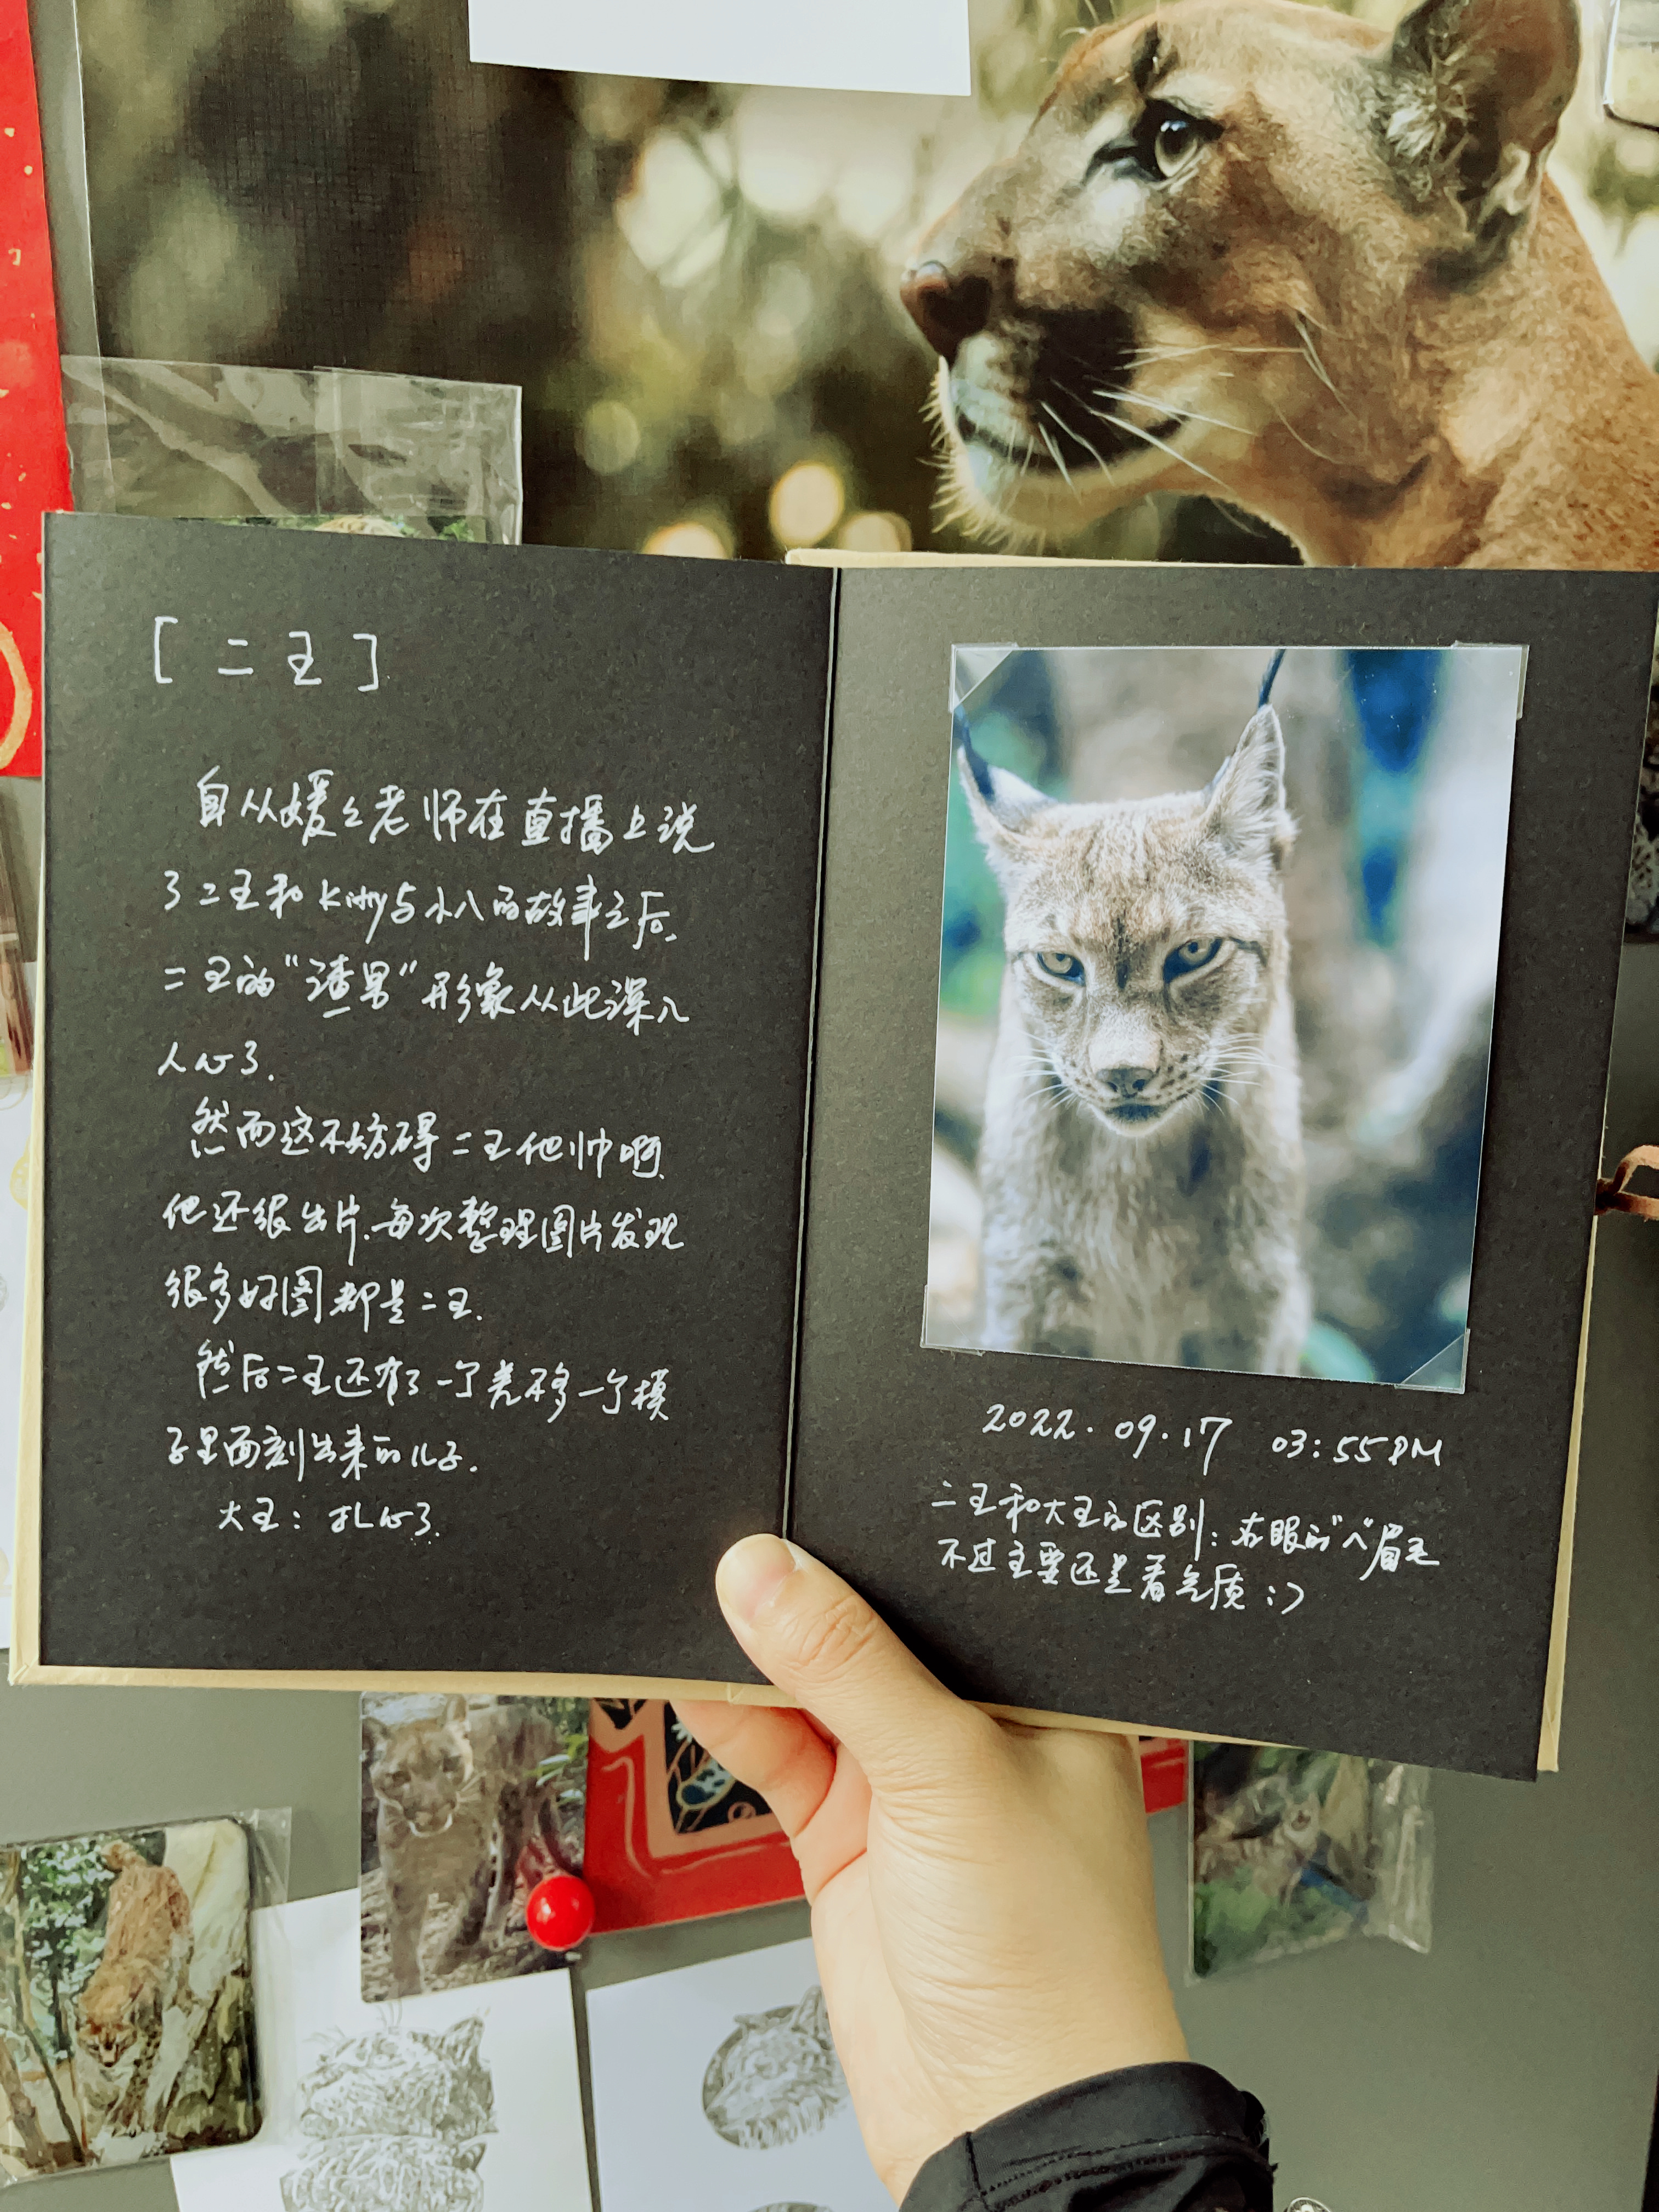 [ 二王 ]
自从媛媛老师在直播上说
了二王和Kitty与小八的故事之后,
二王的“渣男”形象从此深入
人心了.
然而这不妨碍二王他帅啊,
他还很出片.每次整理图片发现
很多好图都是二王.
然后二王还有了一个差不多一个模
子里面刻出来的儿子.
大王: 扎心了.
2022.09.17 03:55PM
二王和大王的区别: 右眼的“八”眉毛
不过主要还是看气质 :)